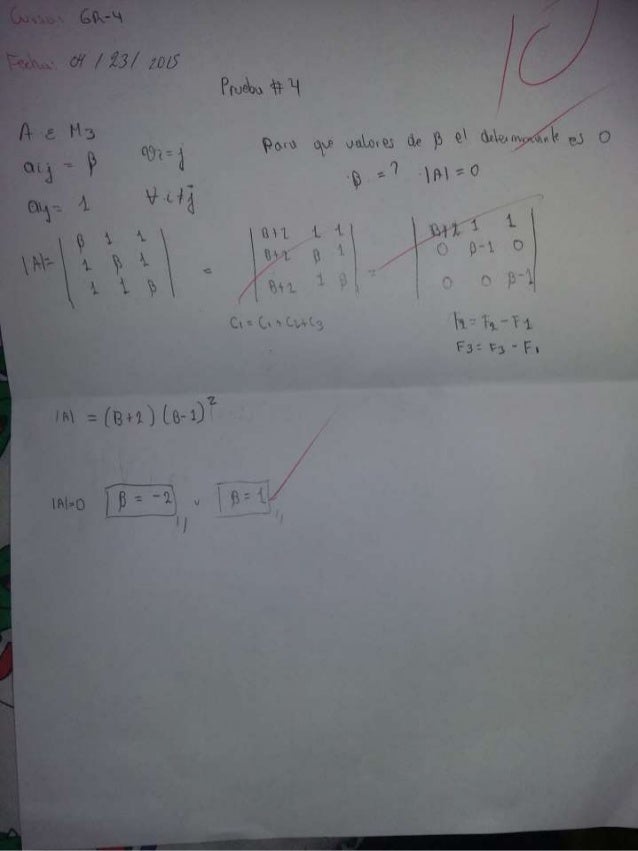 Curso: GR-4
10
Fecha: 04 / 23 / 2015
Prueba # 4
A ∈ M3
aij = β ∀i=j
aij = 1 ∀ i≠j
Para que valores de β el determinante es 0
β = ? |A| = 0
|A|= | β 1 1 | = | β+2 1 1 | = | β+2 1 1 |
| 1 β 1 | | β+2 β 1 | | 0 β-1 0 |
| 1 1 β | | β+2 1 β | | 0 0 β-1 |
C1 = C1 + C2 + C3
F2 = F2 - F1
F3 = F3 - F1
|A| = (β+2) (β-1)²
|A|=0 β = -2 v β = 1